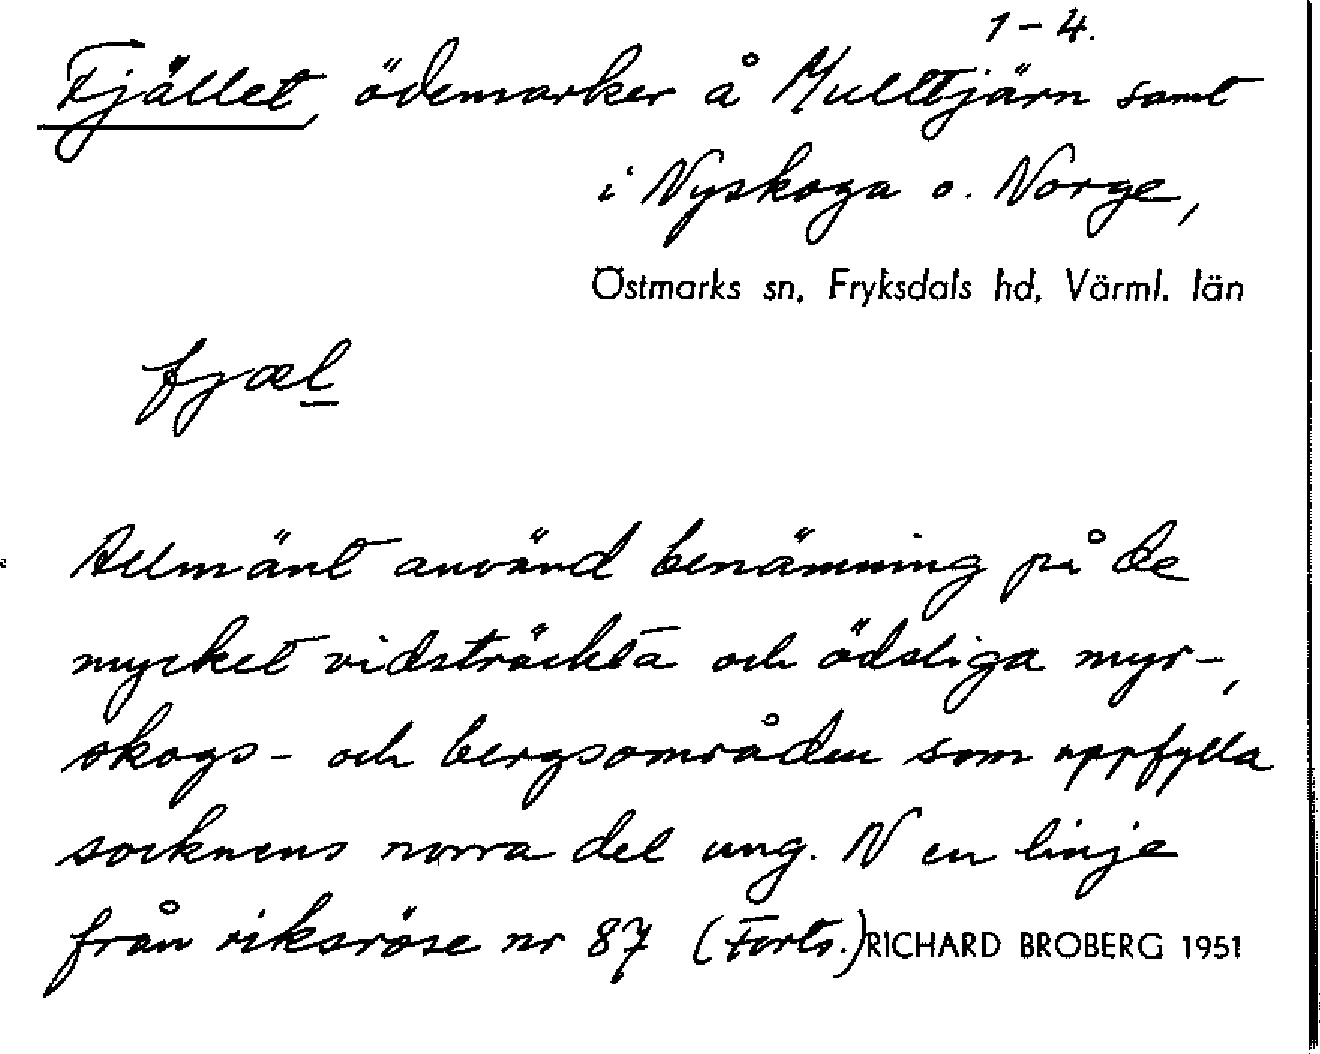 1-4.
Fjället, ödemarker å Mulltjärn samt
i Nyskoga o. Norge,
Östmarks sn, Fryksdals hd, Värml. län
fjæl
Allmänt använd benämning på de
mycket vidsträckta och ödsliga myr-,
skogs- och bergsområden som uppfylla
socknens norra del ung. N en linje
från riksröse nr 87 (Forts.) RICHARD BROBERG 1951